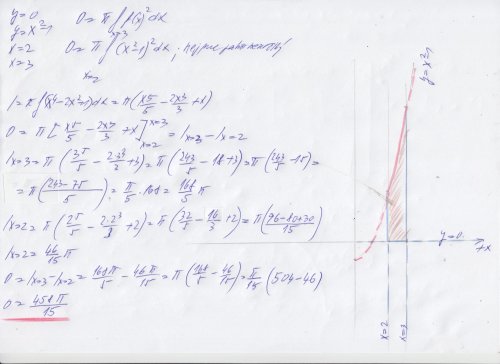 y=0 O=π∫f(x)²dx
y=x²-1
x=2 O=π∫(x²-1)²dx ;
x=3
x=3
x=2
I=π∫(x⁴-2x²+1)dx=π(x⁵/5 - 2x³/3 + x)
O=π[x⁵/5 - 2x³/3 + x] x=3 x=2 = Ix=3 - Ix=2
Ix=3=π(3⁵/5 - 2·3³/3 + 3)=π(243/5 - 18+3)=π(243/5 - 15)=
=π(243-75/5)=π/5·168=168/5 π
Ix=2=π(2⁵/5 - 2·2³/3 + 2)=π(32/5 - 16/3 + 2)=π(96-80+30/15)
Ix=2=46/15 π
O=Ix=3-Ix=2=168π/5 - 46π/15=π(168/5 - 46/15)=π/15(504-46)
O=458π/15
y=x²-1
y=0
+x
x=2
x=3